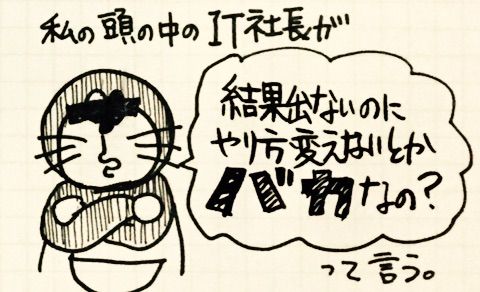 私の頭の中のIT社長が
結果出ないのに
やり方変えないとか
バカなの?
って言う。